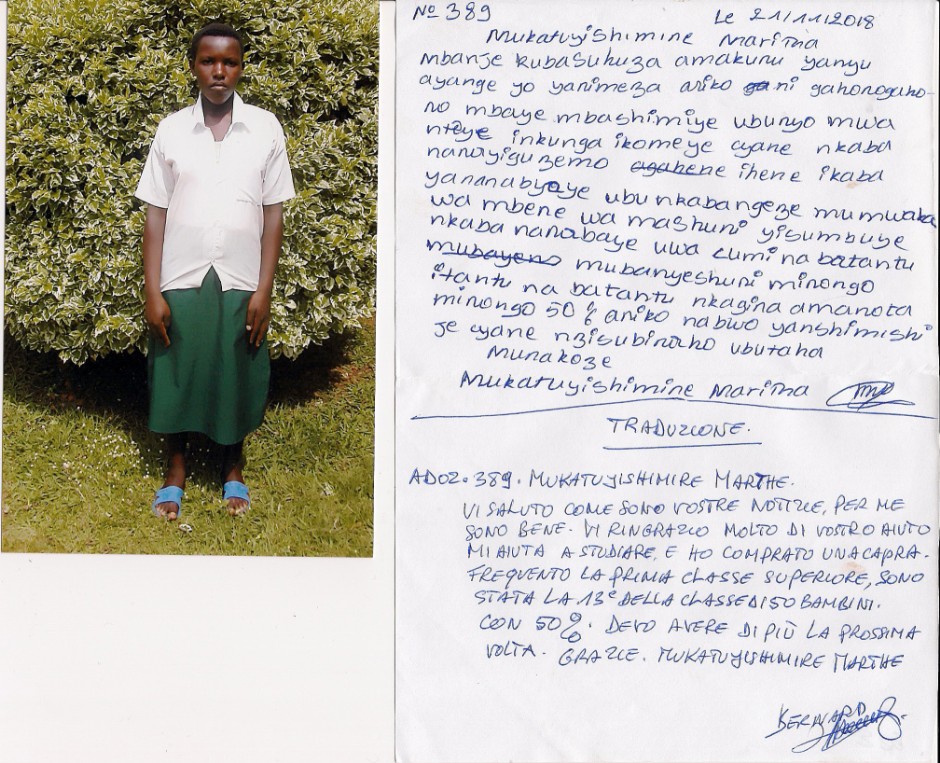 No 389 Le 21/11/2018
Mukatuyishimine Maritha
mbanje kubasuhuza amakunu yanyu
ayange yo yanimeza aniko ni gahonogaho-
no mbaye mbashimiye ubunyo mwa
nteye inkunga ikomeye cyane nkaba
nanayiguzemo ihene ikaba
yananabyaye ubu nkabangeze mumwaka
wa mbene wa mashuni yisumbuye
nkaba nanabaye uwa cumi na batantu
mubanyeshuni minongo
itantu na batantu nkagina amanota
minongo 50 % aniko nabwo yanshimishi
je cyane nzisubinaho ubutaha
Munakoze
Mukatuyishimine Maritha
TRADUZIONE.
ADOZ. 389. MUKATUYISHIMIRE MARTHE.
VI SALUTO COME SONO VOSTRE NOTIZIE, PER ME
SONO BENE. VI RINGRAZIO MOLTO DI VOSTRO AIUTO
MI AIUTA A STUDIARE, E HO COMPRATO UNA CAPRA.
FREQUENTO LA PRIMA CLASSE SUPERIORE, SONO
STATA LA 13e DELLA CLASSE DI 50 BAMBINI.
CON 50%. DEVO AVERE DI PIÙ LA PROSSIMA
VOLTA. GRAZIE. MUKATUYISHIMIRE MARTHE
BERNARD